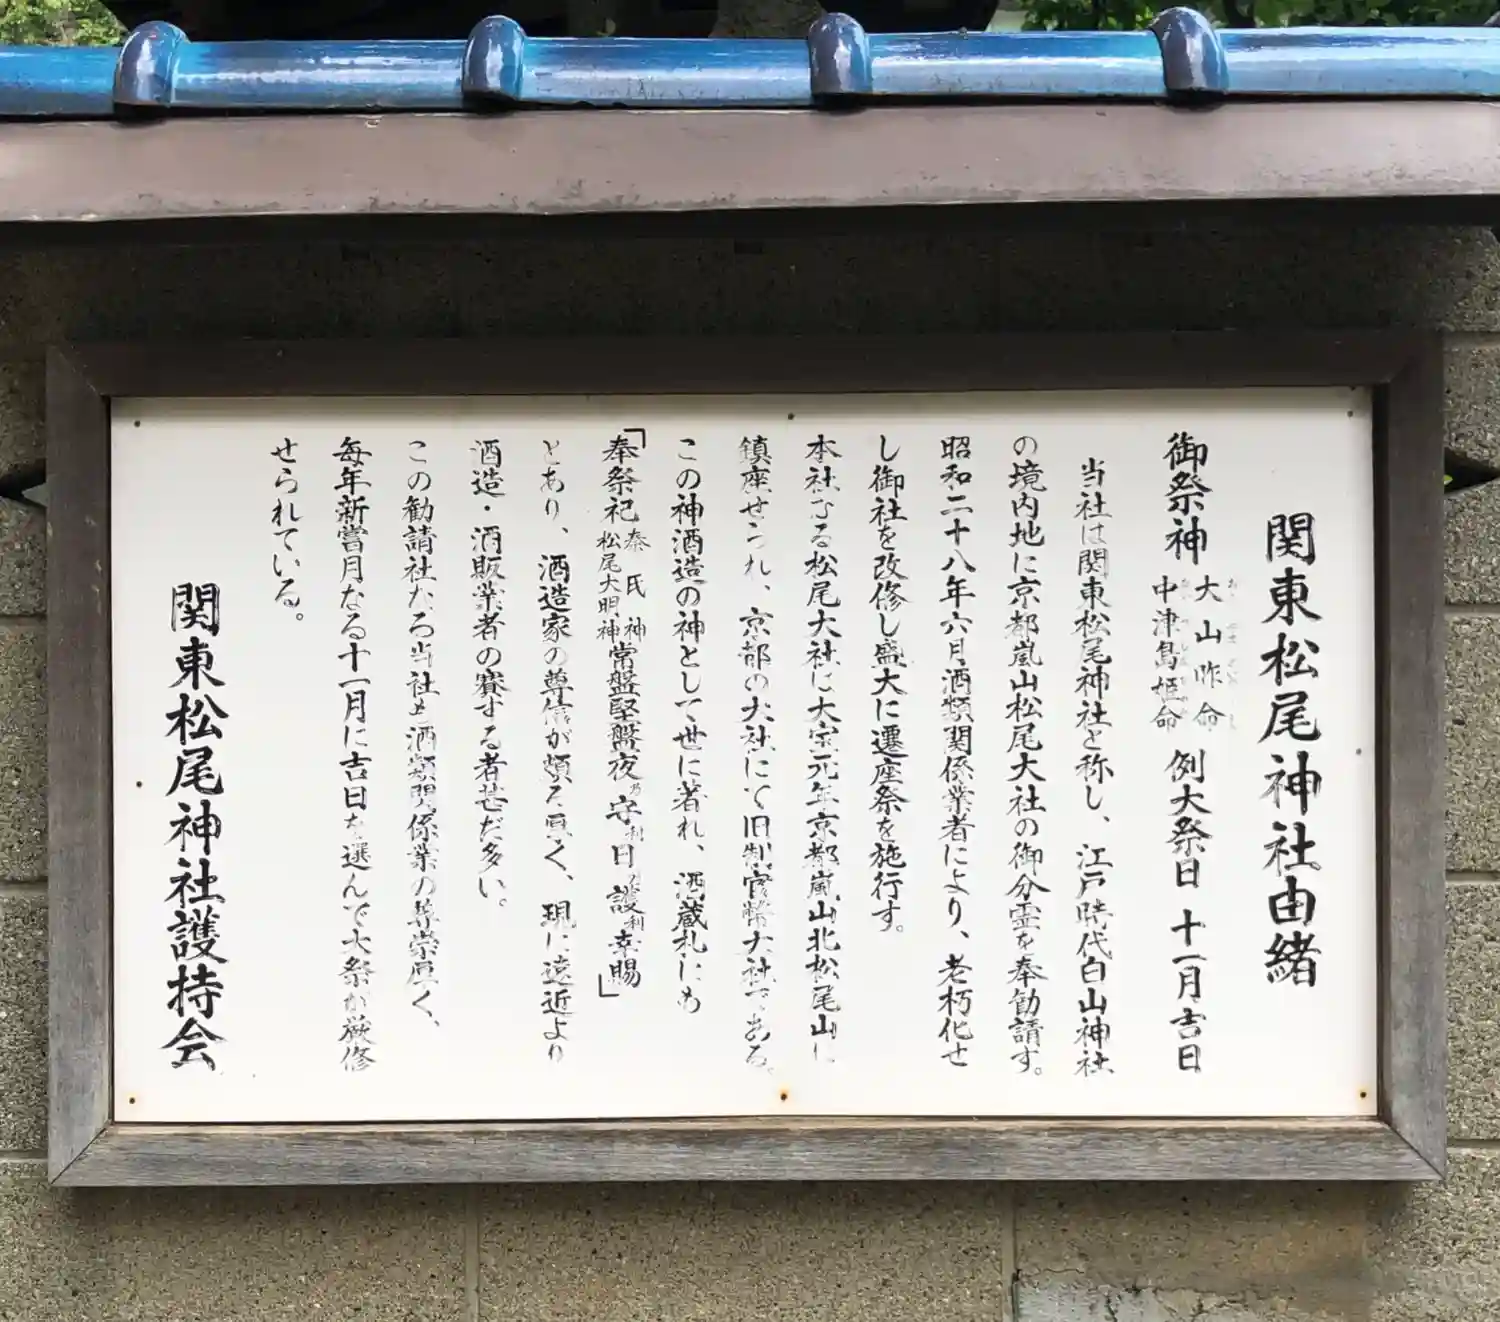 関東松尾神社由緒
御祭神 大山咋命 中津島姫命 例大祭日 十一月吉日
当社は関東松尾神社と称し、江戸時代白山神社
の境内地に京都嵐山松尾大社の御分霊を奉勧請す。
昭和二十八年六月酒類関係業者により、老朽化せ
し御社を改修し盛大に遷座祭を施行す。
本社なる松尾大社に大宝元年京都嵐山北松尾山に
鎮座せられ、京都の大社にて旧制官幣大社である。
この神酒造の神として世に著れ、酒蔵札にも
「奉祭祀 秦氏神 松尾大明神 常盤堅盤夜乃守利日護利幸賜」
とあり、酒造家の尊信が頗る厚く、現に遠近より
酒造・酒販業者の賽する者甚だ多い。
この勧請社なる当社も酒類関係業の尊崇厚く、
毎年新嘗月なる十一月に吉日を選んで大祭が厳修
せられている。
関東松尾神社護持会